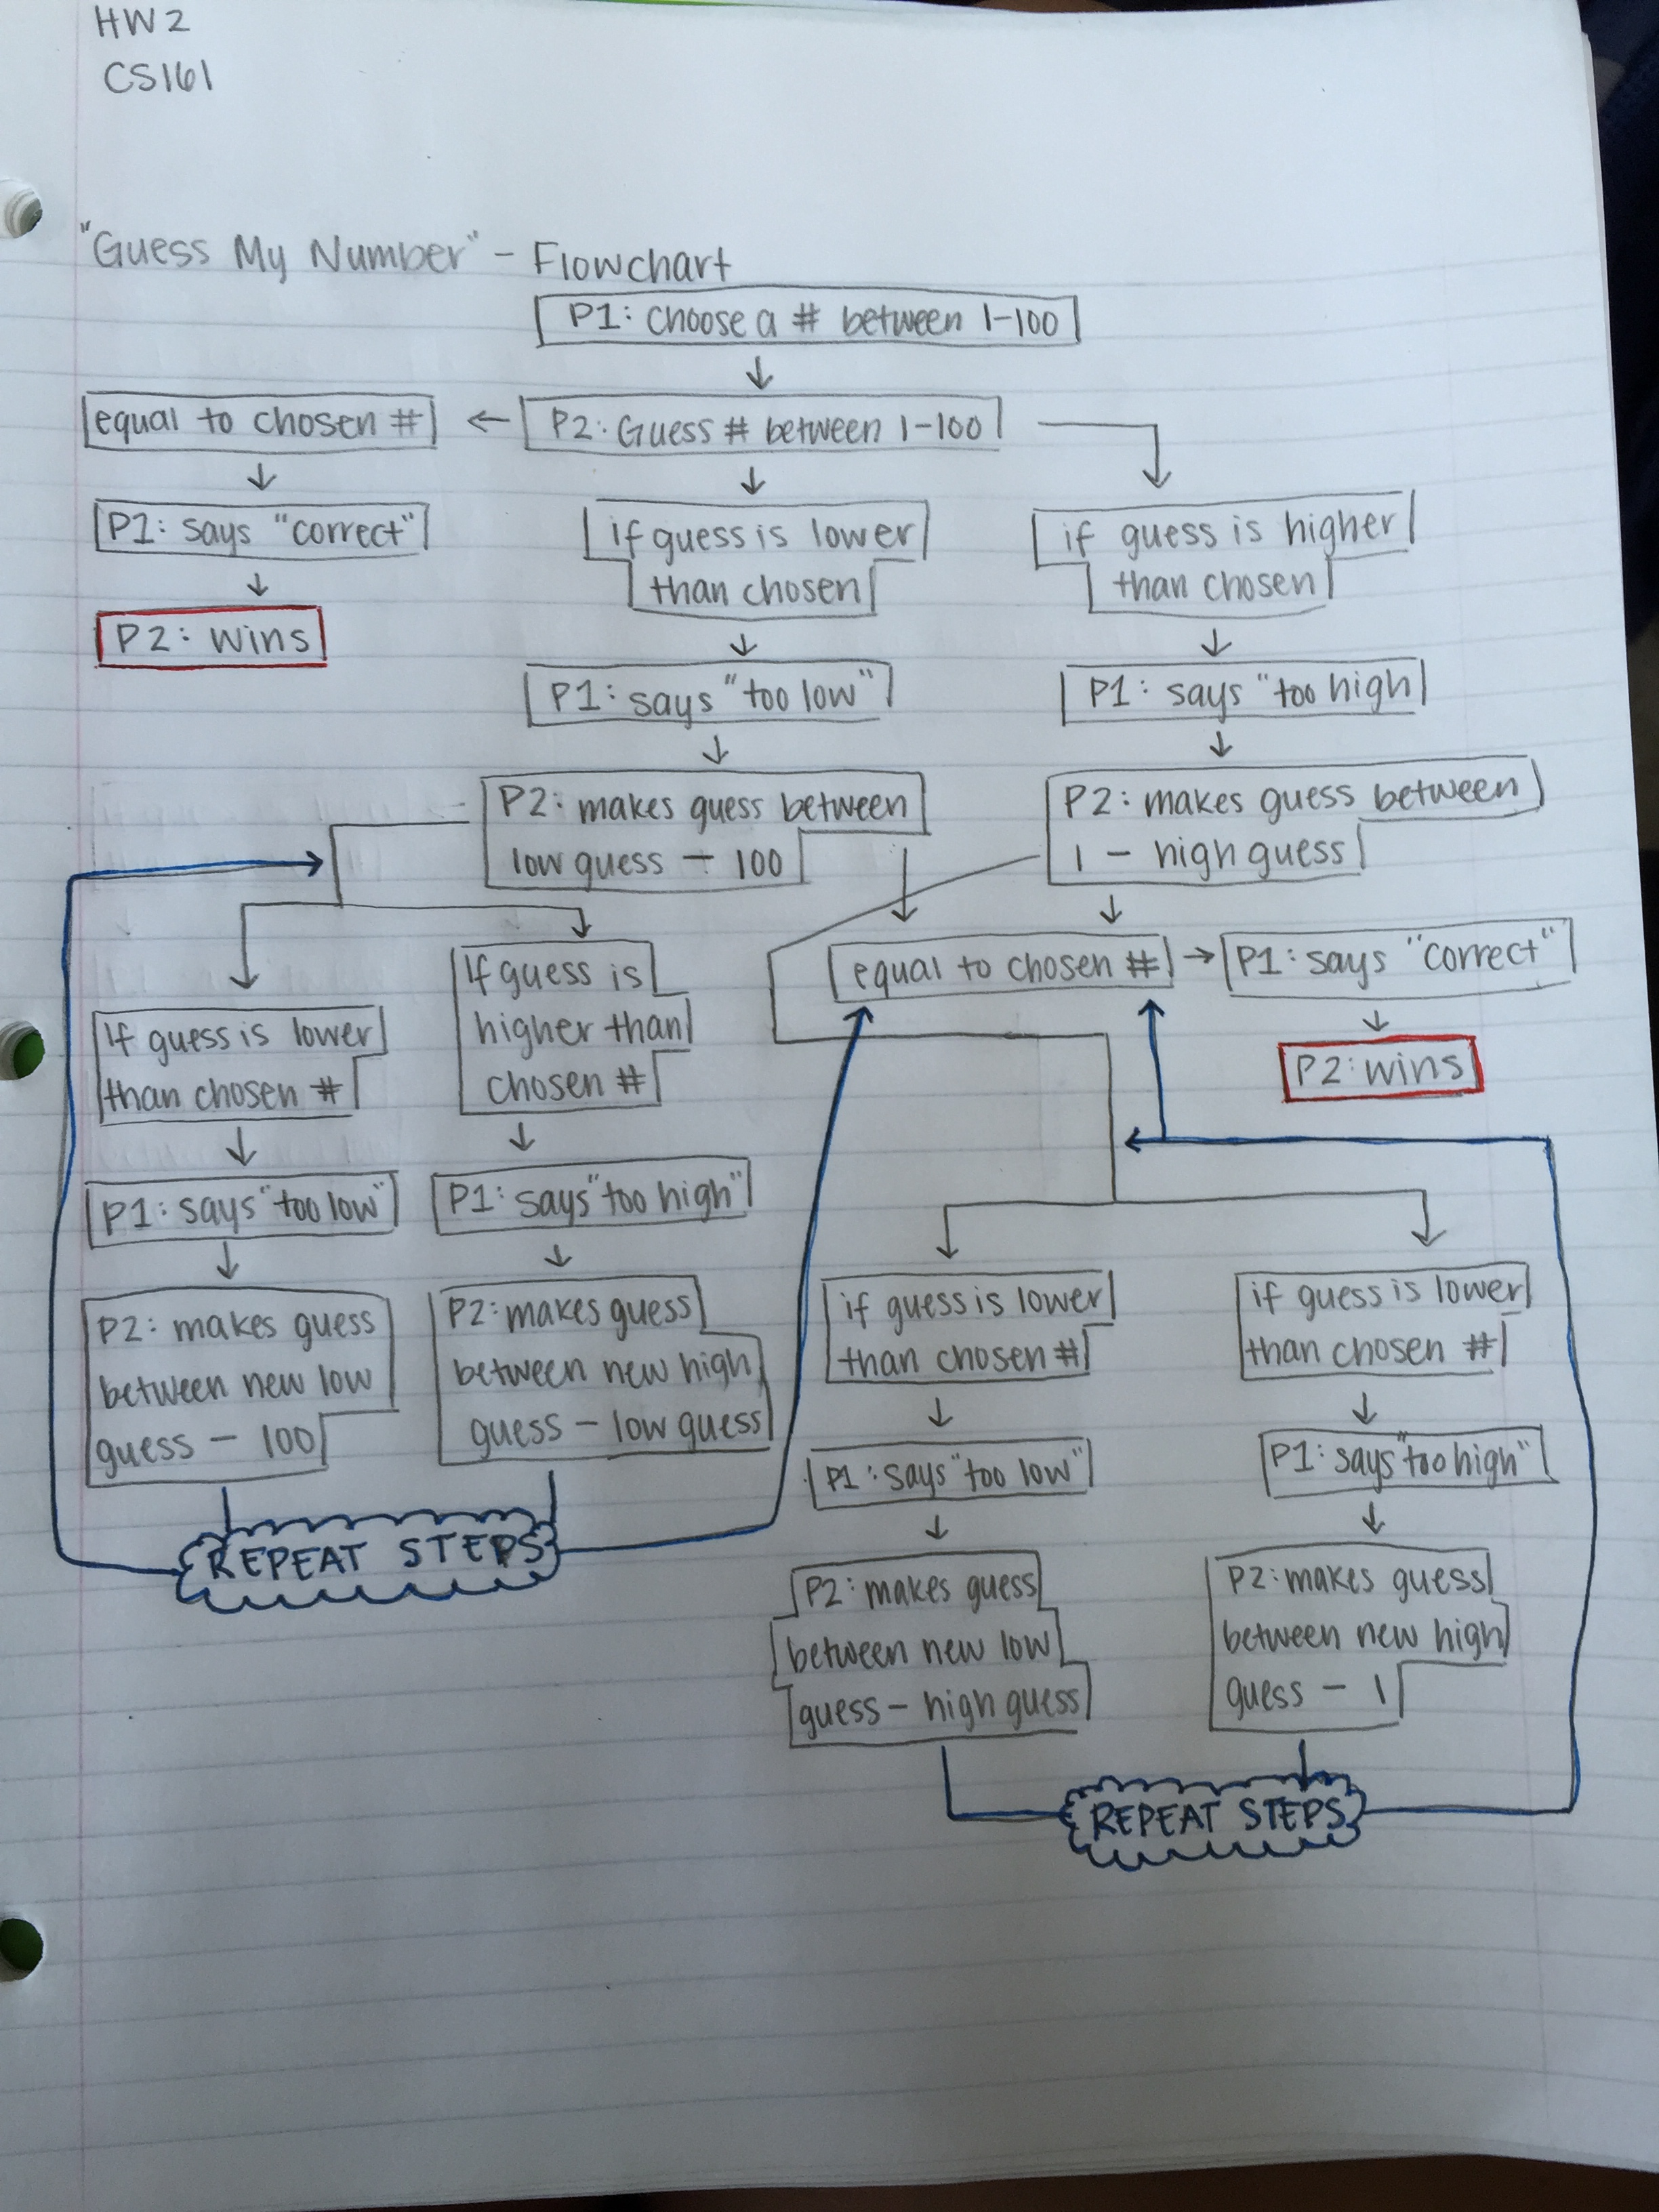 HW2
CS161
"Guess My Number" - Flowchart
P1: choose a # between 1-100
equal to chosen #
P2: Guess # between 1-100
P1: says "correct"
P2: wins
if guess is lower
than chosen
if guess is higher
than chosen
P1: says "too low"
P1: says "too high
P2: makes guess between
low guess - 100
P2: makes guess between
1 - high guess
equal to chosen #
P1: says "correct"
P2: wins
If guess is lower
than chosen #
If guess is
higher than
chosen #
P1: says "too low"
P1: says "too high"
P2: makes guess
between new low
guess - 100
P2: makes guess
between new high
guess - low guess
REPEAT STEPS
if guess is lower
than chosen #
if guess is lower
than chosen #
P1: says "too low"
P1: says "too high"
P2: makes guess
between new low
guess - high guess
P2: makes guess
between new high
guess - 1
REPEAT STEPS